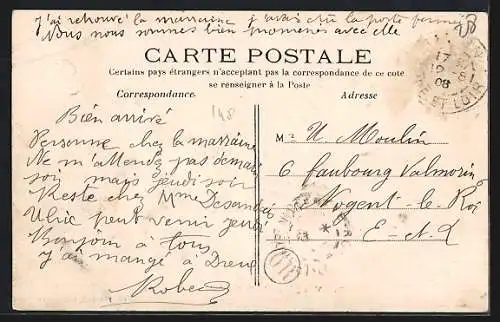 J'ai retrouvé la marraine j'avais cru la porte fermée
Nous nous sommes bien promenés avec elle
CARTE POSTALE
Certains pays étrangers n'acceptant pas la correspondance de ce coté
se renseigner à la Poste
Correspondance
Adresse
Bien arrivé
Personne chez la marraine
Ne m'attendez pas demain
soir mais jeudi soir
Reste chez Mme
Ulric peut venir jeudi
Bonjour à tous
J'ai mangé à Dreux
M. U. Moulin
6 faubourg Valmorin
Nogent-le-Roi
E-&-L
08
ET LOIR